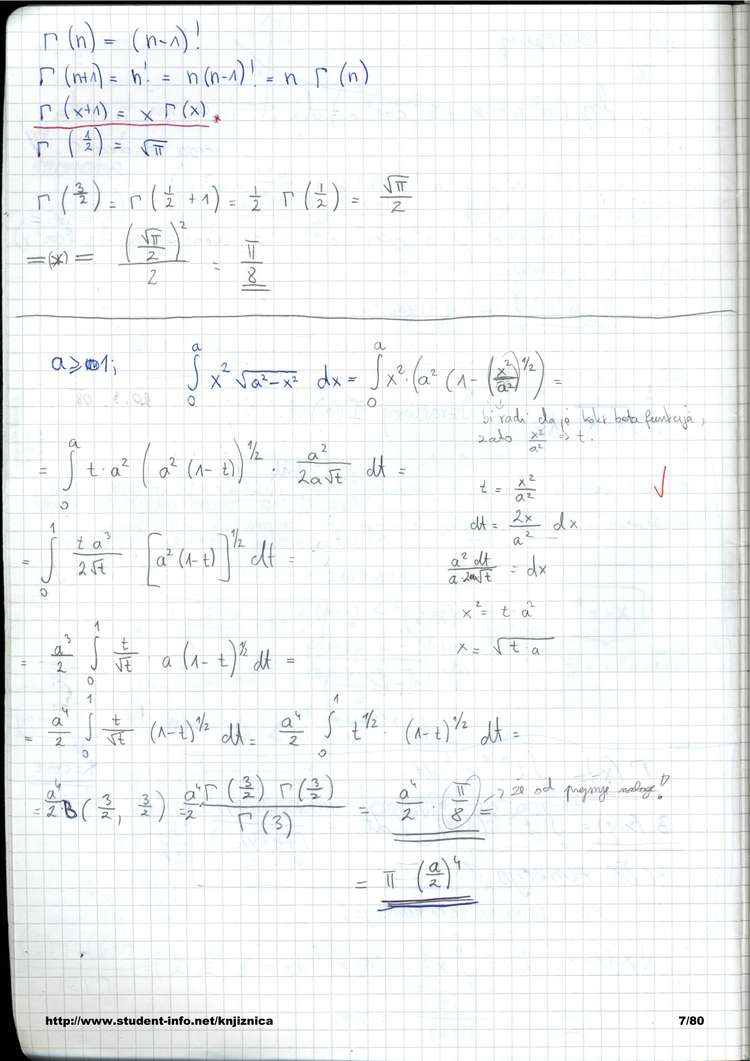 Γ(n) = (n-1)!
Γ(n+1) = n! = n(n-1)! = n Γ(n)
Γ(x+1) = x Γ(x) *
Γ(1/2) = √π
Γ(3/2) = Γ(1/2 + 1) = 1/2 Γ(1/2) = √π/2
=(*)= (√π/2)²/2 = π/8
a ≥ 1; ∫₀ᵃ x² √(a²-x²) dx = ∫₀ᵃ x²·(a² (1-(x²/a²))^1/2) =
bi radi da je beta funkcija,
zato x²/a² => t.
= ∫₀ᵃ t·a² (a² (1-t))^1/2 · a²/(2a√t) dt =
t = x²/a²
dt = 2x/a² dx
= ∫₀¹ (t a³)/(2√t) [a² (1-t)]^1/2 dt =
a² dt/(a·2√t) = dx
x² = t·a²
x = √(t·a)
= a³/2 ∫₀¹ t/√t a (1-t)^1/2 dt =
= a⁴/2 ∫₀¹ t/√t (1-t)^1/2 dt = a⁴/2 ∫₀¹ t^1/2 · (1-t)^1/2 dt =
= a⁴/2 B(3/2, 3/2) = a⁴/2 Γ(3/2) Γ(3/2)/Γ(3) = a⁴/2 · π/8 =
→ že od prejšnje naloge!
= π (a/2)⁴
http://www.student-info.net/knjiznica
7/80